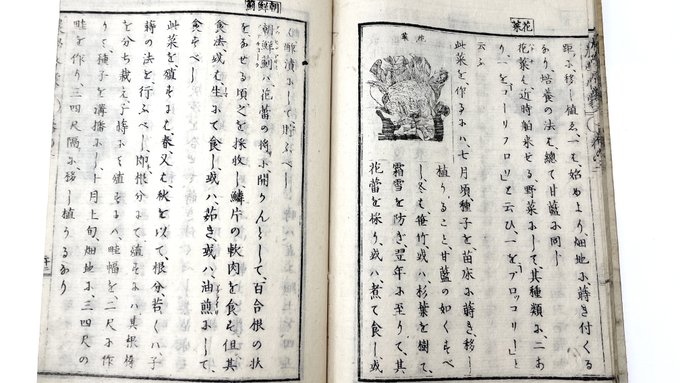 花菜
距に移し植ゑ、一は始めより、畑地に蒔き付くる
なり、培養の法は、總て甘藍に同し
花菜は、近時舶来せる、野菜にして、其種類に二あ
り、一を「フリフロリ」と云ひ、一を「ブロッコリー」と
云ふ
花菜
此菜を作るにハ、七月頃種子を苗床に蒔き移し
植うること、甘藍の如くすべ
し、冬は笹竹或ハ、杉葉を樹て、
霜雪を防ぎ、翌年に至りて、其
花蕾を採り、或ハ、煮て食し、或
朝鮮薊
ハ酢漬にして貯ふべし
朝鮮薊ハ、花蕾の将に開かんとして、百合根の状
をなせる頃、之を採收し、鱗片の軟肉を食す、但其
食法、或は生にて食し、或ハ、茹き或ハ、油煎にして、
食すべし
此菜を、殖すには、春又は、秋を以て、根分若くハ、子
蒔の法を行ふべし、即根分にて殖すにハ、其根株
を分ち栽え、子蒔にて殖するハ、畦幅を、二尺に作
りて種子を溝播にし、十月上旬、畑地に、三四尺の
畦を作り三四尺隔に移し植うるなり